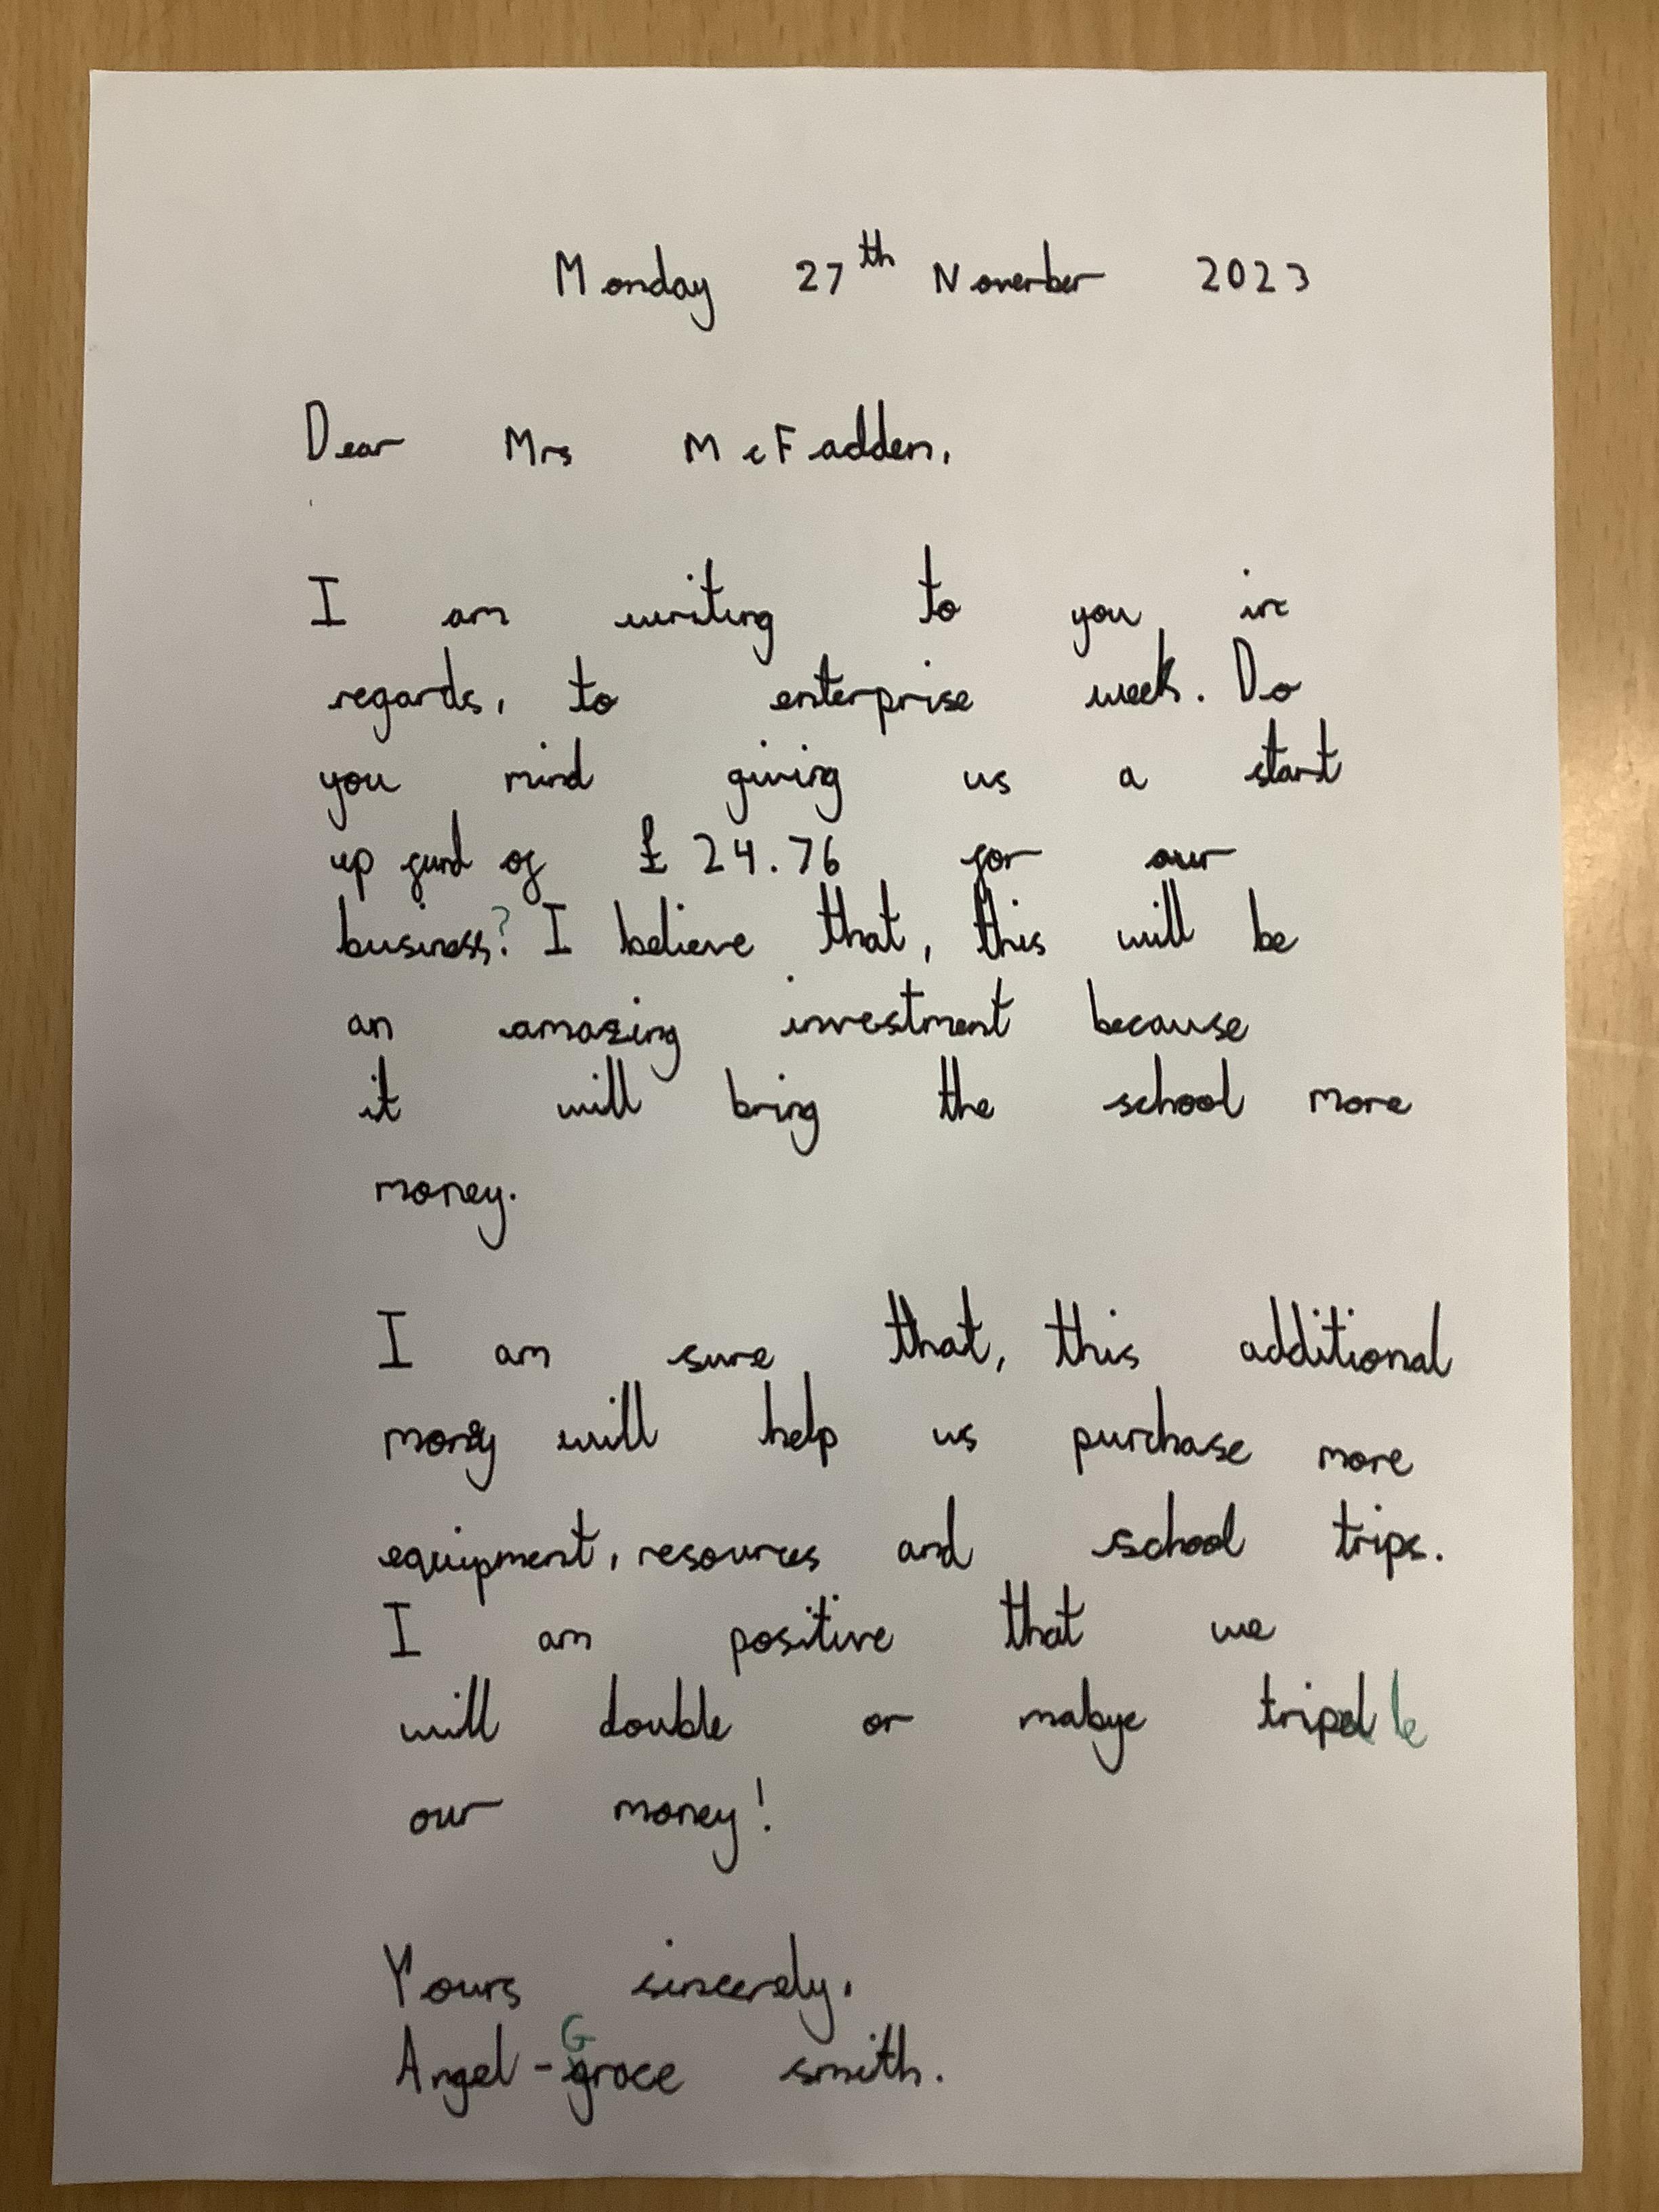 Monday 27th November 2023
Dear Mrs McFadden,
I am writing to you in
regards, to enterprise week. Do
you mind giving us a start
up fund of £24.76 for our
business? I believe that, this will be
an amazing investment because
it will bring the school more
money.
I am sure that, this additional
money will help us purchase more
equipment, resources and school trips.
I am positive that we
will double or mabye triple
our money!
Yours sincerely,
Angel-Grace smith.